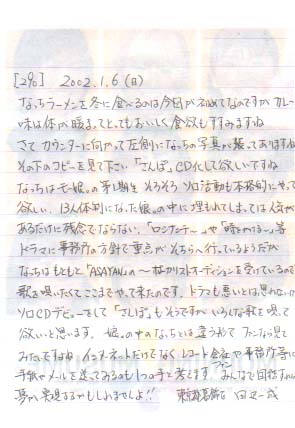 [290] 2002.1.6(日)
なっちラーメンを冬に食べるのは今日が初めてなのですが カレー
味は体が暖まってとてもおいしく食欲もすすみますね
さて カウンターに向かって左側になっちの写真が張ってありますね
その下のコピーを見て下さい「さんぽ」CD化して欲しいですね
なっちはモー娘。の第1期生 そろそろ ソロ活動も本格的にやって
欲しい。13人体制になった娘。の中に埋もれてしまっては人気が
あるだけに残念でならない。
ドラマに事務所の方針で重点がそちらへ行っているようだが
なっちはもともと「ASAYAN」の オーディションを受けているので
歌を唄いたくてここまでやって来たのです。ドラマも悪いとは思わない
ソロCDデビューをして「さんぽ」もそうですが いろんな歌を唄って
欲しいと思います。娘。の中のなっちとは違う形で ファンなら見て
みたいですよね インターネットだけでなくレコード会社や事務所等に
手紙やメールを送ってみるのも1つの手と考てます。みんなで目指すのは
夢が実現するかもしれませんよ!! 東京都葛飾区